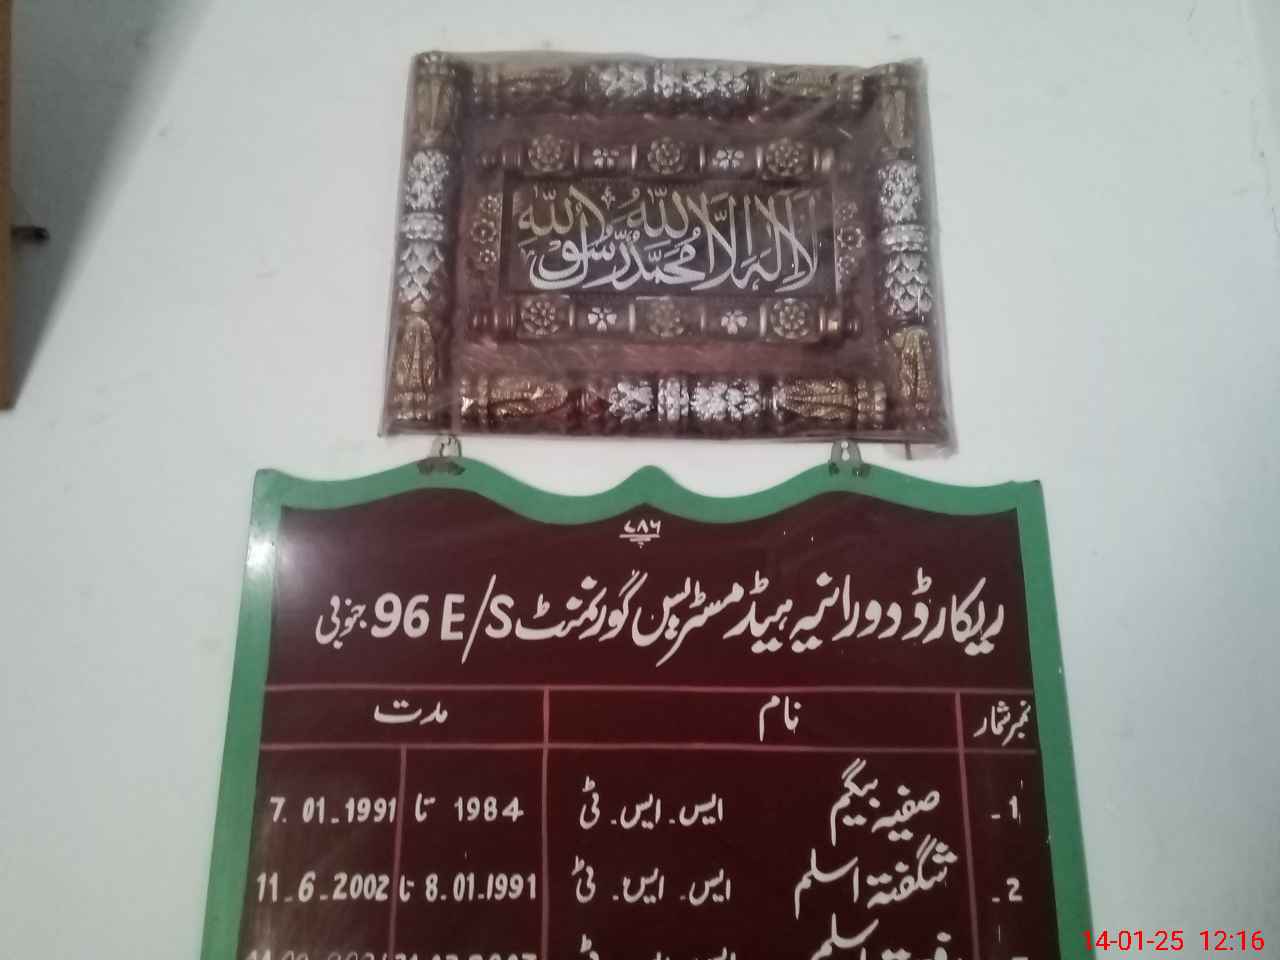 لا اله الا الله محمد رسول الله
٧٨٦
ریکارڈ دورانیہ ہیڈ مسٹریس گورنمنٹ 96 E/S جنوبی
نمبر شمار نام مدت
1- صفیہ بیگم ایس۔ ایس۔ ٹی 1984 تا 7.01.1991
2- شگفتہ اسلم ایس۔ ایس۔ ٹی 8.01.1991 تا 11.6.2002
اسلم
14-01-25 12:16